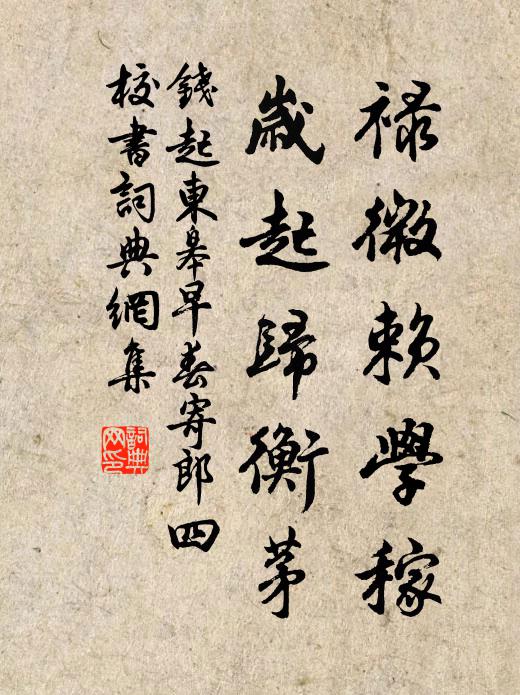 祿微賴學稼
歲起歸衡茅
錢起東皋早春寄郎四
校書詞典網集
詞典
网印